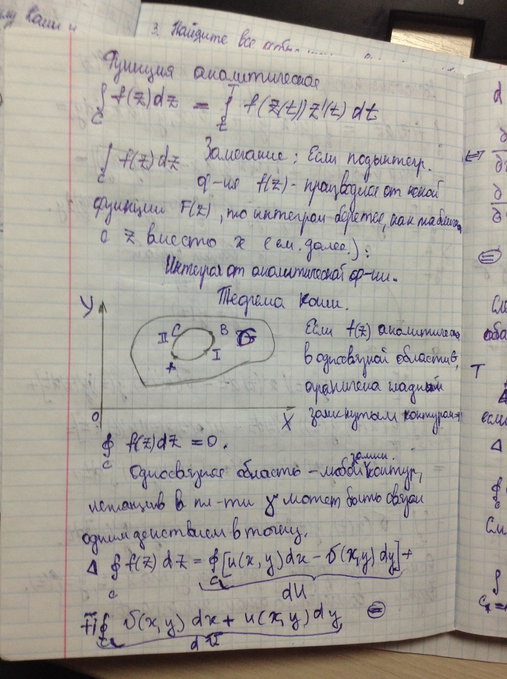 3. Найдите все
Функция аналитическая
∫ f(z)dz = ∫ f(z(t)) z'(t) dt
C
∫ f(z)dz Замечание: Если подынтегр.
C
ф-ия f(z) - производная от некой
функции F(z), то интеграл берется, как
с z вместо x (см. далее.):
Интеграл от аналитической ф-ии.
Теорема Коши.
Y
II C B
I
A
0 X
Если f(z) аналитична
в односвязной области,
ограничена гладким
замкнутым контуром
∮ f(z)dz = 0.
C
замкн.
Односвязная область – любой контур,
лежащий в пл-ти может быть связан
одним действием в точку.
Δ ∮ f(z)dz = ∮ [u(x,y)dx – v(x,y)dy] +
C
dU
+i∮ v(x,y)dx + u(x,y)dy =
C
dV